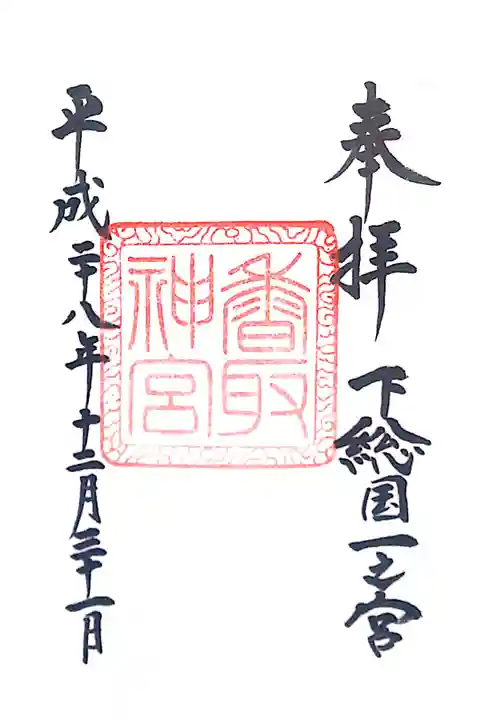 奉拝
下総国一之宮
香取
神宮
平成二十八年十二月三十一日